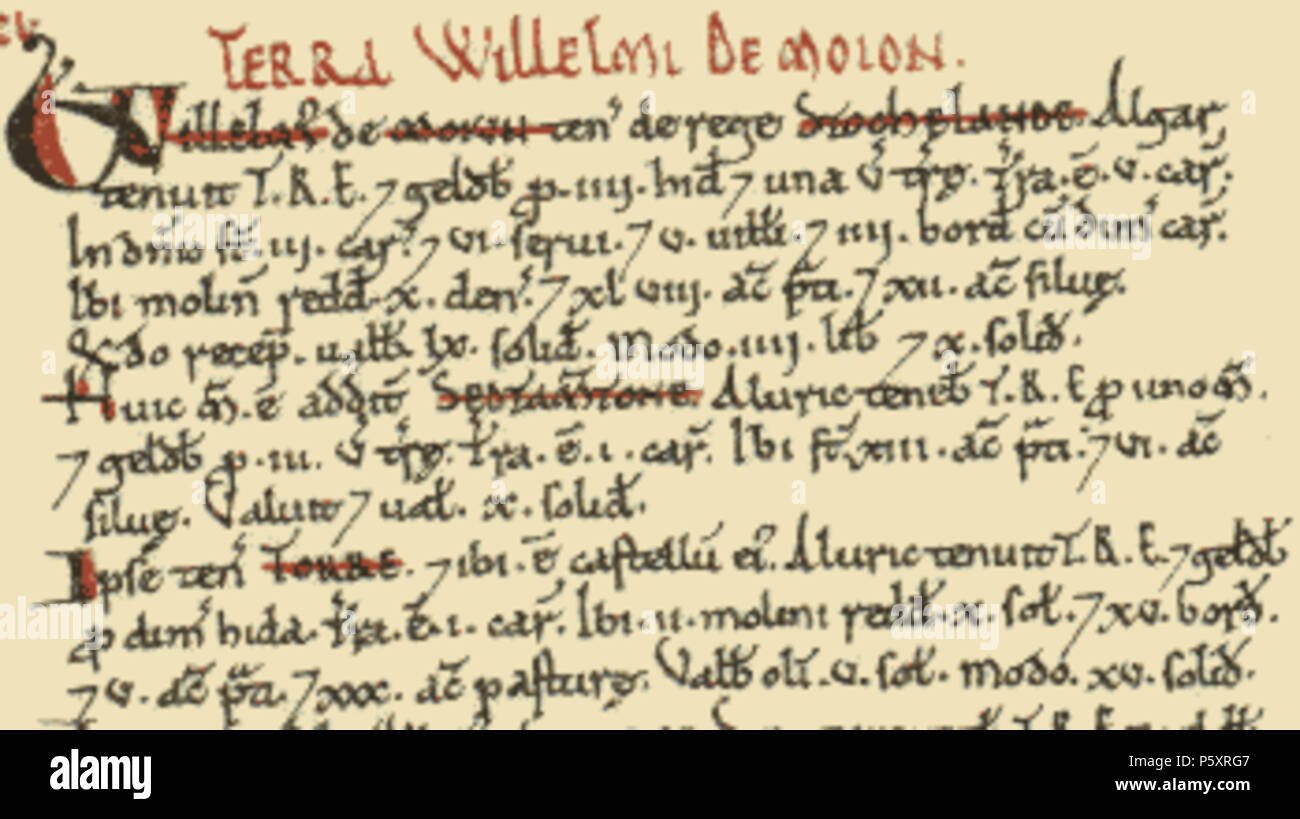 TERRA WILLELMI DE MOION.
Willelm' de moiun ten' de rege Stochelande. Algar
tenuit T.R.E. ⁊ geldb̄ p̱. iiij. hid̄ ⁊ una v̓ træ. Tr̓a. ē. v. car̓.
In dn̄io st̄ iij. car̓. ⁊ vi. serui. ⁊ v. uilli̵ ⁊ iiij. bord̄ cū dim̓ car̓.
Ibi molin̄ redd̄. x. den̓. ⁊ xl viij. ac̄ p̄ti. ⁊ xii. ac̄ siluę.
Q̄do recep̱. ualb̄ lx. solid̄. Modo. iiij. lib̄ ⁊ x. solid̄.
Huic m̄. ē addit̄ Aluric teneb̄ T.R.E p̱ uno m̄.
⁊ geldb̄ p̱. iii. v̓ træ. Tr̓a. ē. i. car̓. Ibi st̄. xiii. ac̄ p̄ti. ⁊ vi. ac̄
siluę. Valuit ⁊ ual̄. x. solid̄.
Ipse ten̓ Torre. ⁊ ibi. ē castellū ei'. Aluric tenuit T.R.E. ⁊ geldb̄
p̱ dim̓ hida. Tr̓a. ē. i. car̓. Ibi. ii. molini redd̄. x. sol̄. ⁊ xv. bord̄.
⁊ v. ac̄ p̄ti. ⁊ xxx. ac̄ pasturę. Valb̄ oli̅. v. sol̄. modo. xv. solid̄.
alamy
Image ID: P5XRG7
www.alamy.com